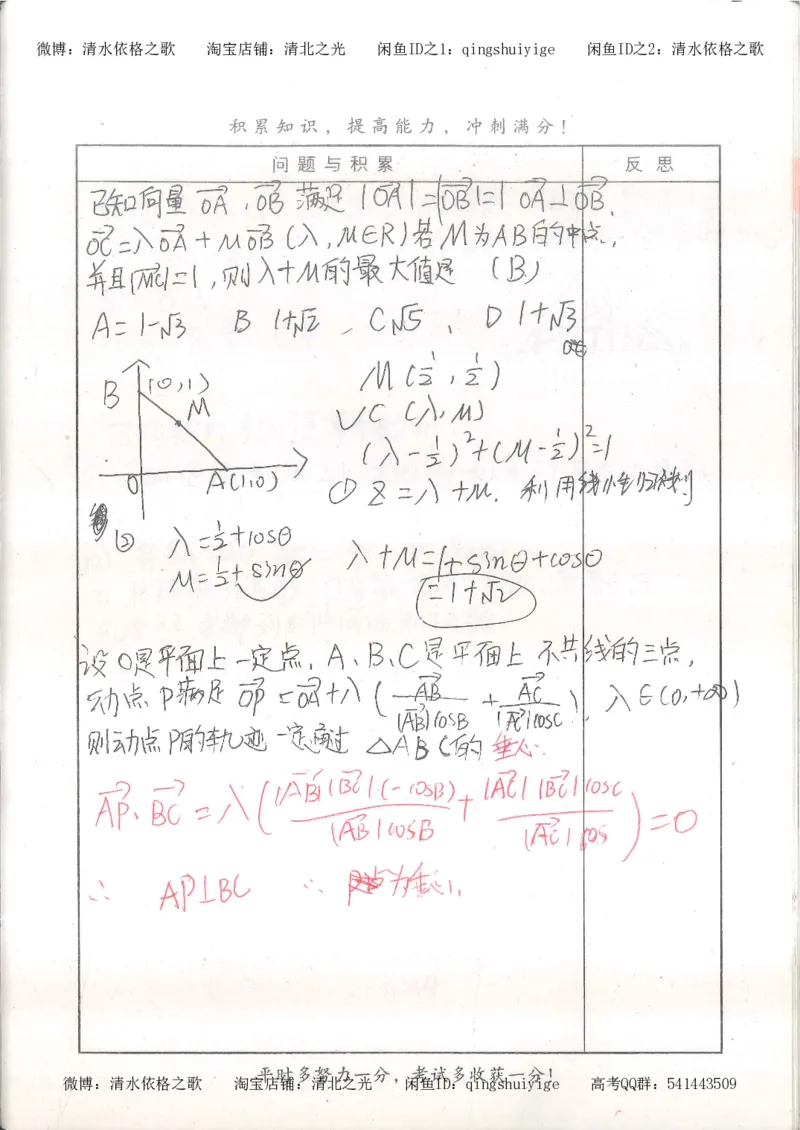 微博：清水依格之歌 淘宝店铺：清北之光 闲鱼ID之1：qingshuiyige 闲鱼ID之2：清水依格之歌
积累知识，提高能力，冲刺满分！
问题与积累 反思
已知向量 OA，OB 满足 |OA|=|OB|=1 OA⊥OB，
OC=λOA+μOB（λ，μ∈R）若M为AB的中点，
并且|MC|=1，则λ+μ的最大值是 （B）
A=1-√3 B 1+√2 、C√5、 D 1+√3
B (0,1) M(½,½)
M C (λ,μ)
(λ-½)²+(μ-½)²=1
O A(1,0) ① Z=λ+μ. 利用线性规划
② λ=½+cosθ λ+μ=1+sinθ+cosθ
μ=½+sinθ =1+√2
设O是平面上一定点，A、B、C是平面上不共线的三点，
动点P满足 OP=OA+λ(AB/|AB|cosB + AC/|AC|cosC)，λ∈(0,+∞)
则动点P的轨迹一定通过 △ABC的垂心.
AP·BC=λ(|AB||BC|(-cosB)/|AB|cosB + |AC||BC|cosC/|AC|cos)=0
∴ AP⊥BC ∴ 为垂心.
平时多努力一分，考试多收获一分！
微博：清水依格之歌 淘宝店铺：清北之光 闲鱼ID：qingshuiyige 高考QQ群：541443509